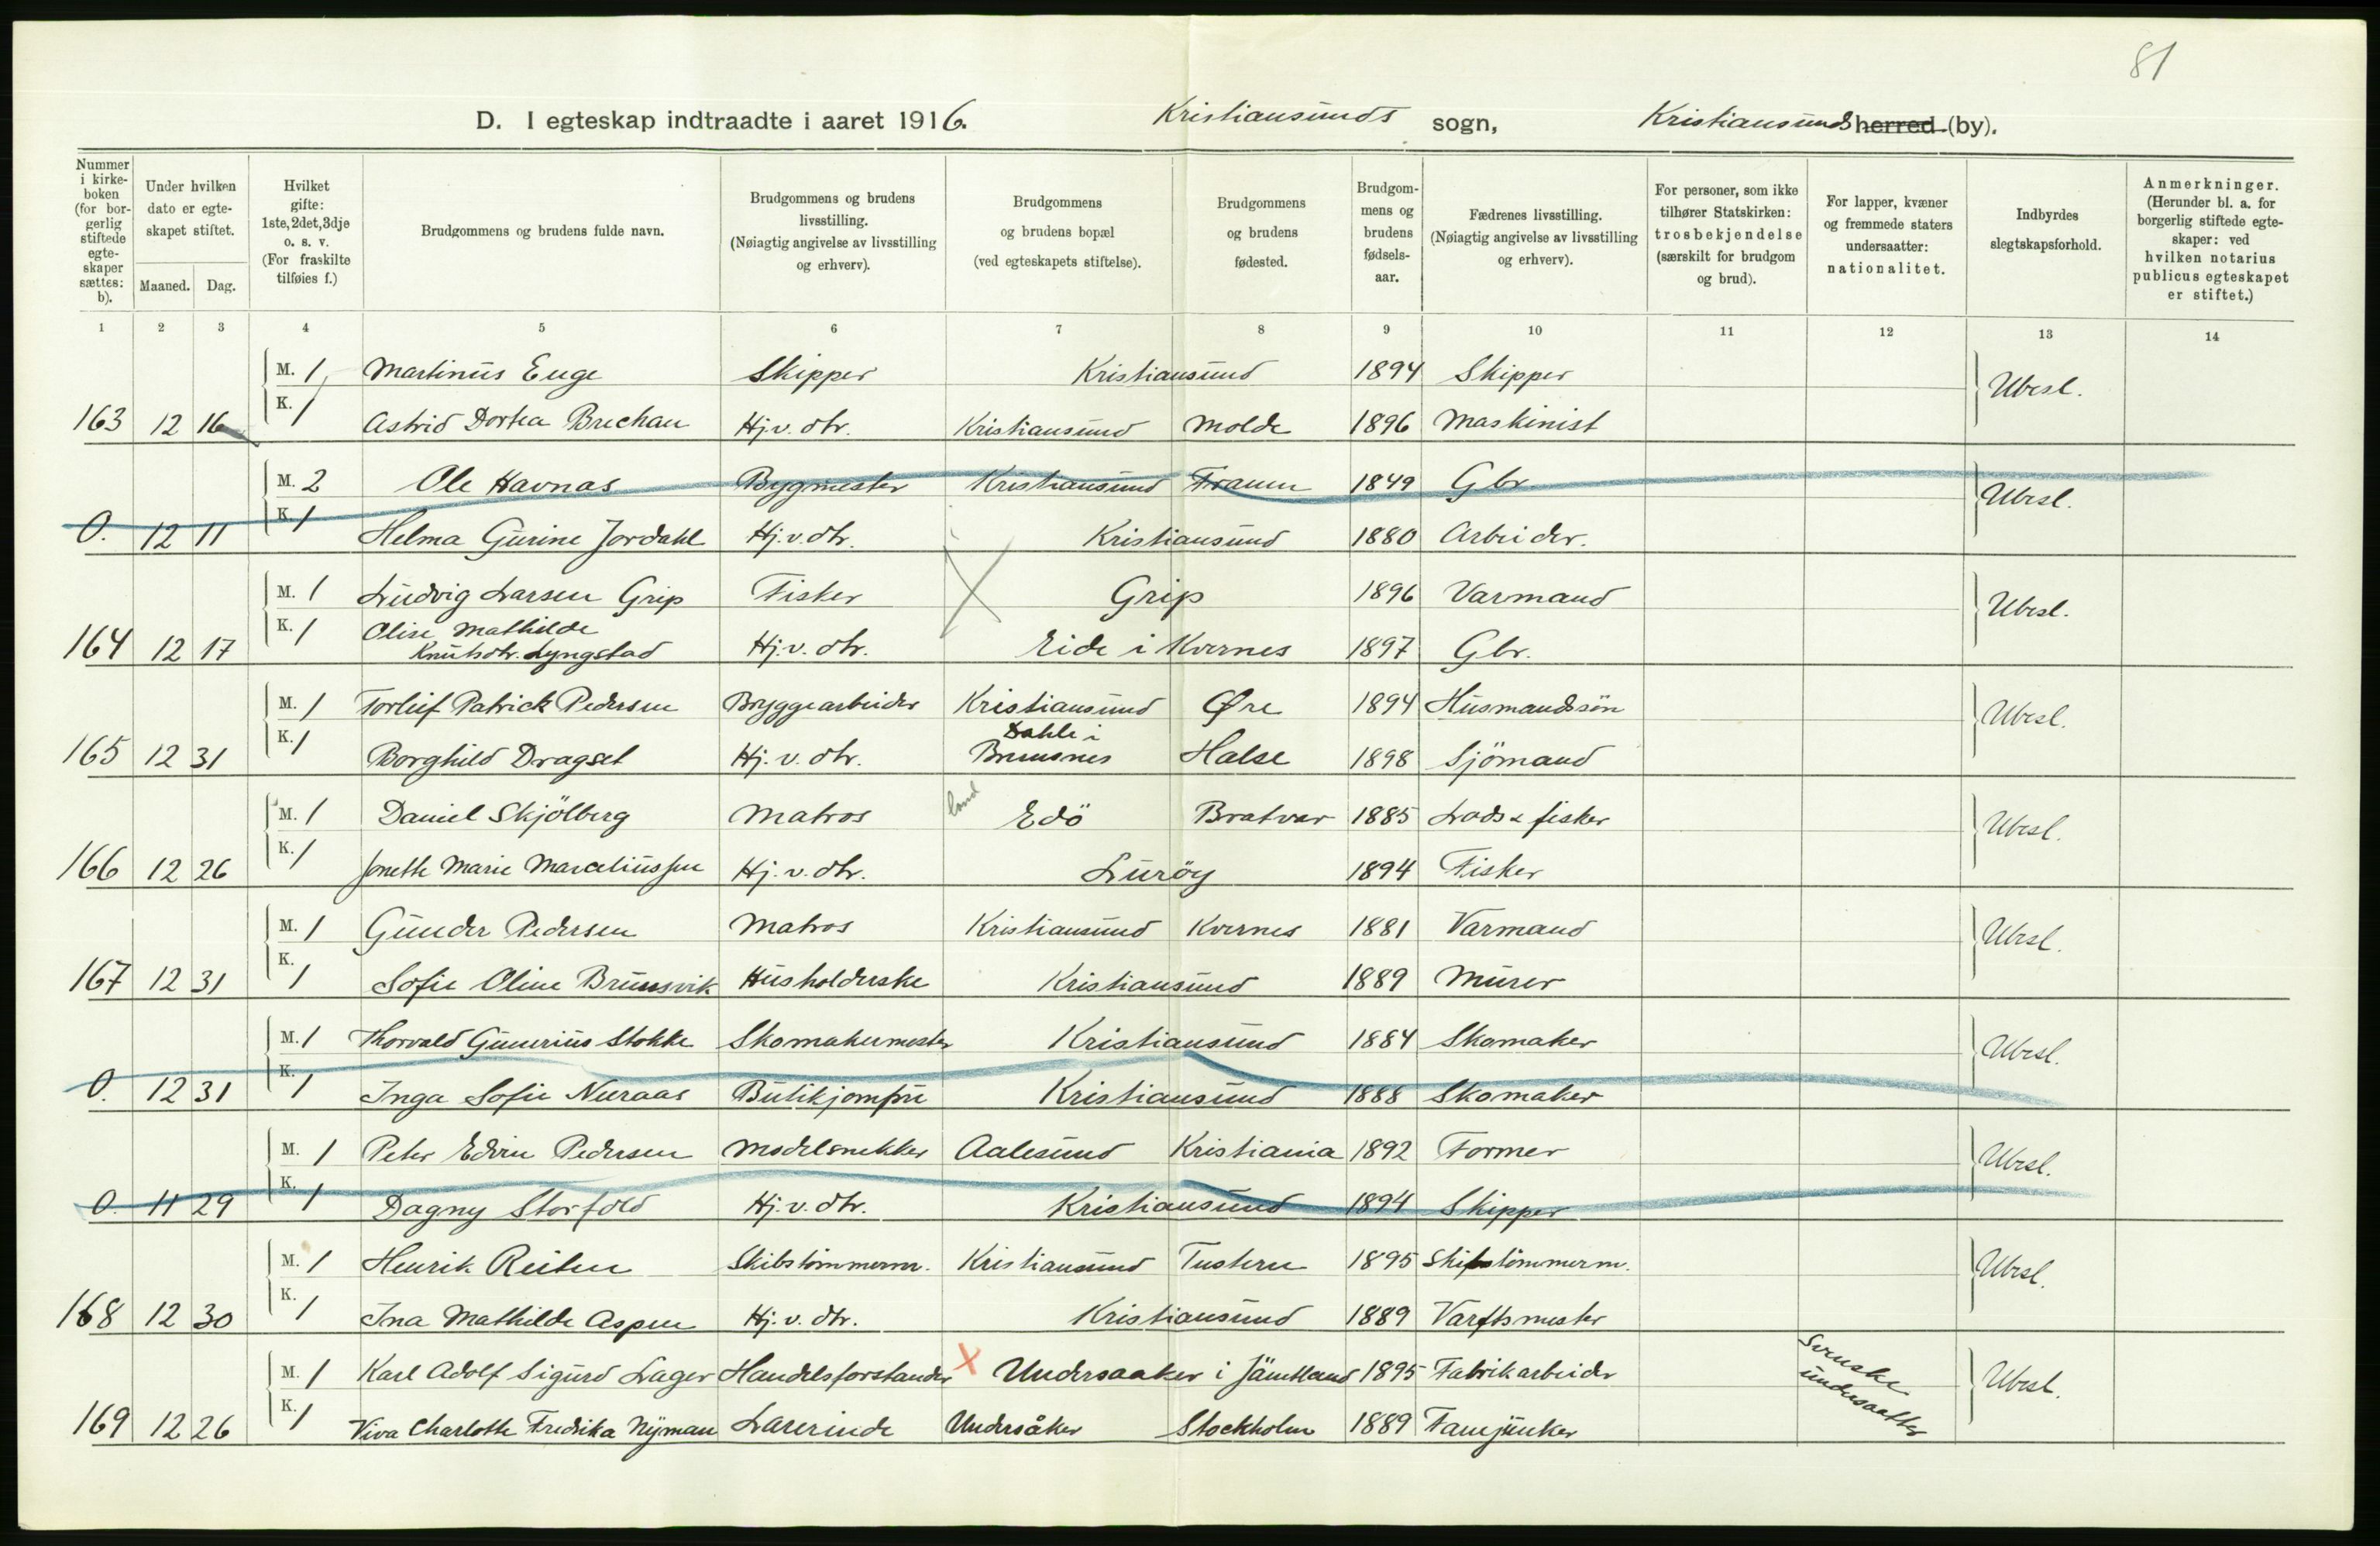 81
D. I egteskap indtraadte i aaret 1916. Kristiansunds sogn, Kristiansunds herred (by).
Nummer i kirke-boken (for bor-gerlig stiftede egte-skaper sættes: b).
Under hvilken dato er egte-skapet stiftet.
Maaned. Dag.
Hvilket gifte: 1ste, 2det, 3dje o. s. v. (For fraskilte tilføies f.)
Brudgommens og brudens fulde navn.
Brudgommens og brudens livsstilling. (Nøiagtig angivelse av livsstilling og erhverv).
Brudgommens og brudens bopæl (ved egteskapets stiftelse).
Brudgommens og brudens fødested.
Brudgom-mens og brudens fødsels-aar.
Fædrenes livsstilling. (Nøiagtig angivelse av livsstilling og erhverv).
For personer, som ikke tilhører Statskirken: trosbekjendelse (særskilt for brudgom og brud).
For lapper, kvæner og fremmede staters undersaatter: nationalitet.
Indbyrdes slegtskapsforhold.
Anmerkninger. (Herunder bl. a. for borgerlig stiftede egte-skaper: ved hvilken notarius publicus egteskapet er stiftet.)
1 2 3 4 5 6 7 8 9 10 11 12 13 14
M. 1 Martinus Euge Skipper Kristiansund 1894 Skipper Ubesl.
163 12 16 K. 1 Astrid Dortea Brechan Hj.v. dtr. Kristiansund Molde 1896 Maskinist
M. 2 Ole Havnas Bygmester Kristiansund Fraenn 1849 Gbr. Ubesl.
0. 12 11 K. 1 Helma Gurine Jordahl Hj.v.dtr. Kristiansund 1880 Arbeider.
M. 1 Ludvig Larsen Grip Fisker Grip 1896 Varmand Ubesl.
164 12 17 K. 1 Olise Mathilde Knutsdtr. Lyngstad Hj.v. dtr. Eide i Kvernes 1897 Gbr.
M. 1 Torleif Patrick Pedersen Bryggearbeider Kristiansund Øre 1894 Husmandssøn Ubesl.
165 12 31 K. 1 Borghild Dragset Hj. v. dtr. Dahle i Bremsnes Halse 1898 Sjömand
M. 1 Daniel Skjölberg Matros land Edö Bratvær 1885 Lods & fisker Ubesl.
166 12 26 K. 1 Jonette Marie Marceliussen Hj. v. dtr. Luröy 1894 Fisker
M. 1 Gunder Pedersen Matros Kristiansund Kvernes 1881 Varmand Ubesl.
167 12 31 K. 1 Sofie Oline Brunsvik Husholderske Kristiansund 1889 Murer
M. 1 Thorvald Gunerius Stokke Skomakermester Kristiansund 1884 Skomaker Ubesl.
0. 12 31 K. 1 Inga Sofie Neeraas Butikjomfru Kristiansund 1888 Skomaker
M. 1 Peter Edvin Pedersen Modelsnekker Aalesund Kristiania 1892 Former Ubesl.
0. 11 29 K. 1 Dagny Storfold Hj.v. dtr. Kristiansund 1894 Skipper
M. 1 Henrik Reiten Skibstömmerm. Kristiansund Tustern 1895 Skibstömmerm. Ubesl.
168 12 30 K. 1 Ina Mathilde Aspen Hj. v. dtr. Kristiansund 1889 Varftsmester
M. 1 Karl Adolf Sigurd Lager Handelsforstander X Undersaaker i Jämtland 1895 Fabrikarbeider Svenske undersaatter Ubesl.
169 12 26 K. 1 Viva Charlotte Fredrika Nyman Lærerinde Undersåker Stockholm 1889 Fanejunker